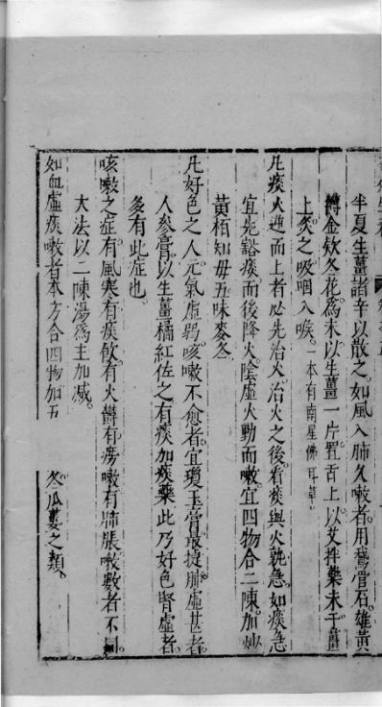 半夏生薑諸辛以散之如風入肺久嗽者用鵞管石雄黃
欝金欵冬花爲末以生薑一片置舌上以艾拌藥末于薑
上灸之吸咽入喉一本有南星佛耳草
凡痰火逆而上者必先治火治火之後看痰與火孰急如痰急
宜先豁痰而後降火陰虛火動而嗽宜四物合二陳加炒
黃栢知母五味麥冬
凡好色之人元氣虛弱咳嗽不愈者宜瓊玉膏最捷肺虛甚者
人參膏以生薑橘紅佐之有痰加痰藥此乃好色腎虛者
多有此症也
咳嗽之症有風寒有痰飲有火欝有勞嗽有肺脹嗽數者不同
大法以二陳湯爲主加減
如血虛痰嗽者本方合四物加五 冬瓜蔞之類